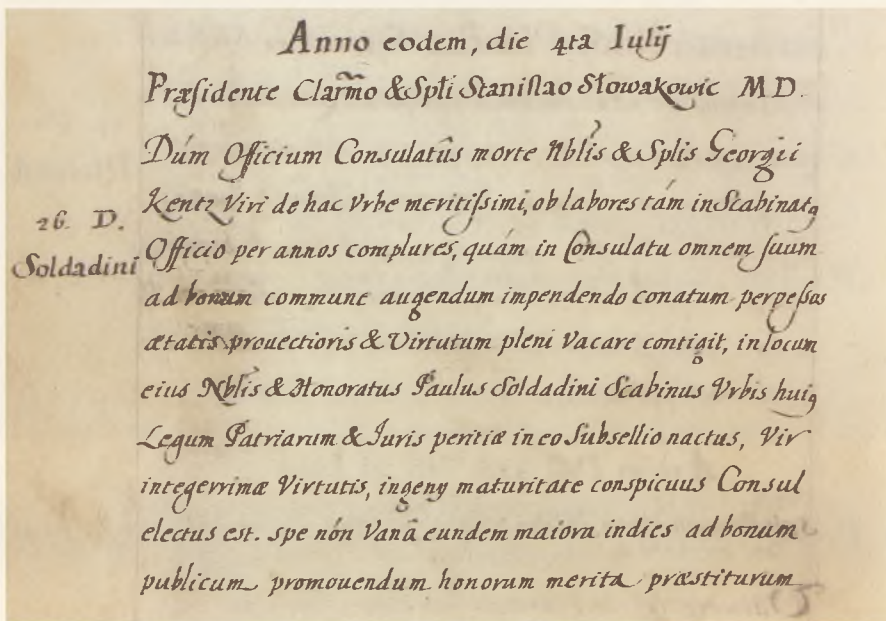 Anno eodem, die 4ta Iulij
Præsidente Clarmo & Spli Stanislao Słowakowic M D.
Dúm Officium Consulatûs morte Nblis & Splis Georgii
Kentz Viri de hac Vrbe meritissimi, ob labores tám in Scabinatꝯ
26. D.
Soldadini
Officio per annos complures, quám in Consulatu omnem suum
ad bonum commune augendum impendendo conatum perpessos
ætatis prouectioris & Virtutum pleni Vacare contigit, in locum
eius Nblis & Honoratus Paulus Soldadini Scabinus Vrbis huiꝯ
Legum Patriarum & Juris peritiæ in eo Subsellio nactus, Vir
integerrimæ Virtutis, ingenij maturitate conspicuus Consul
electus est. spe nón Vanâ eundem maiora indies ad bonum
publicum promouendum honorum merita præstiturum